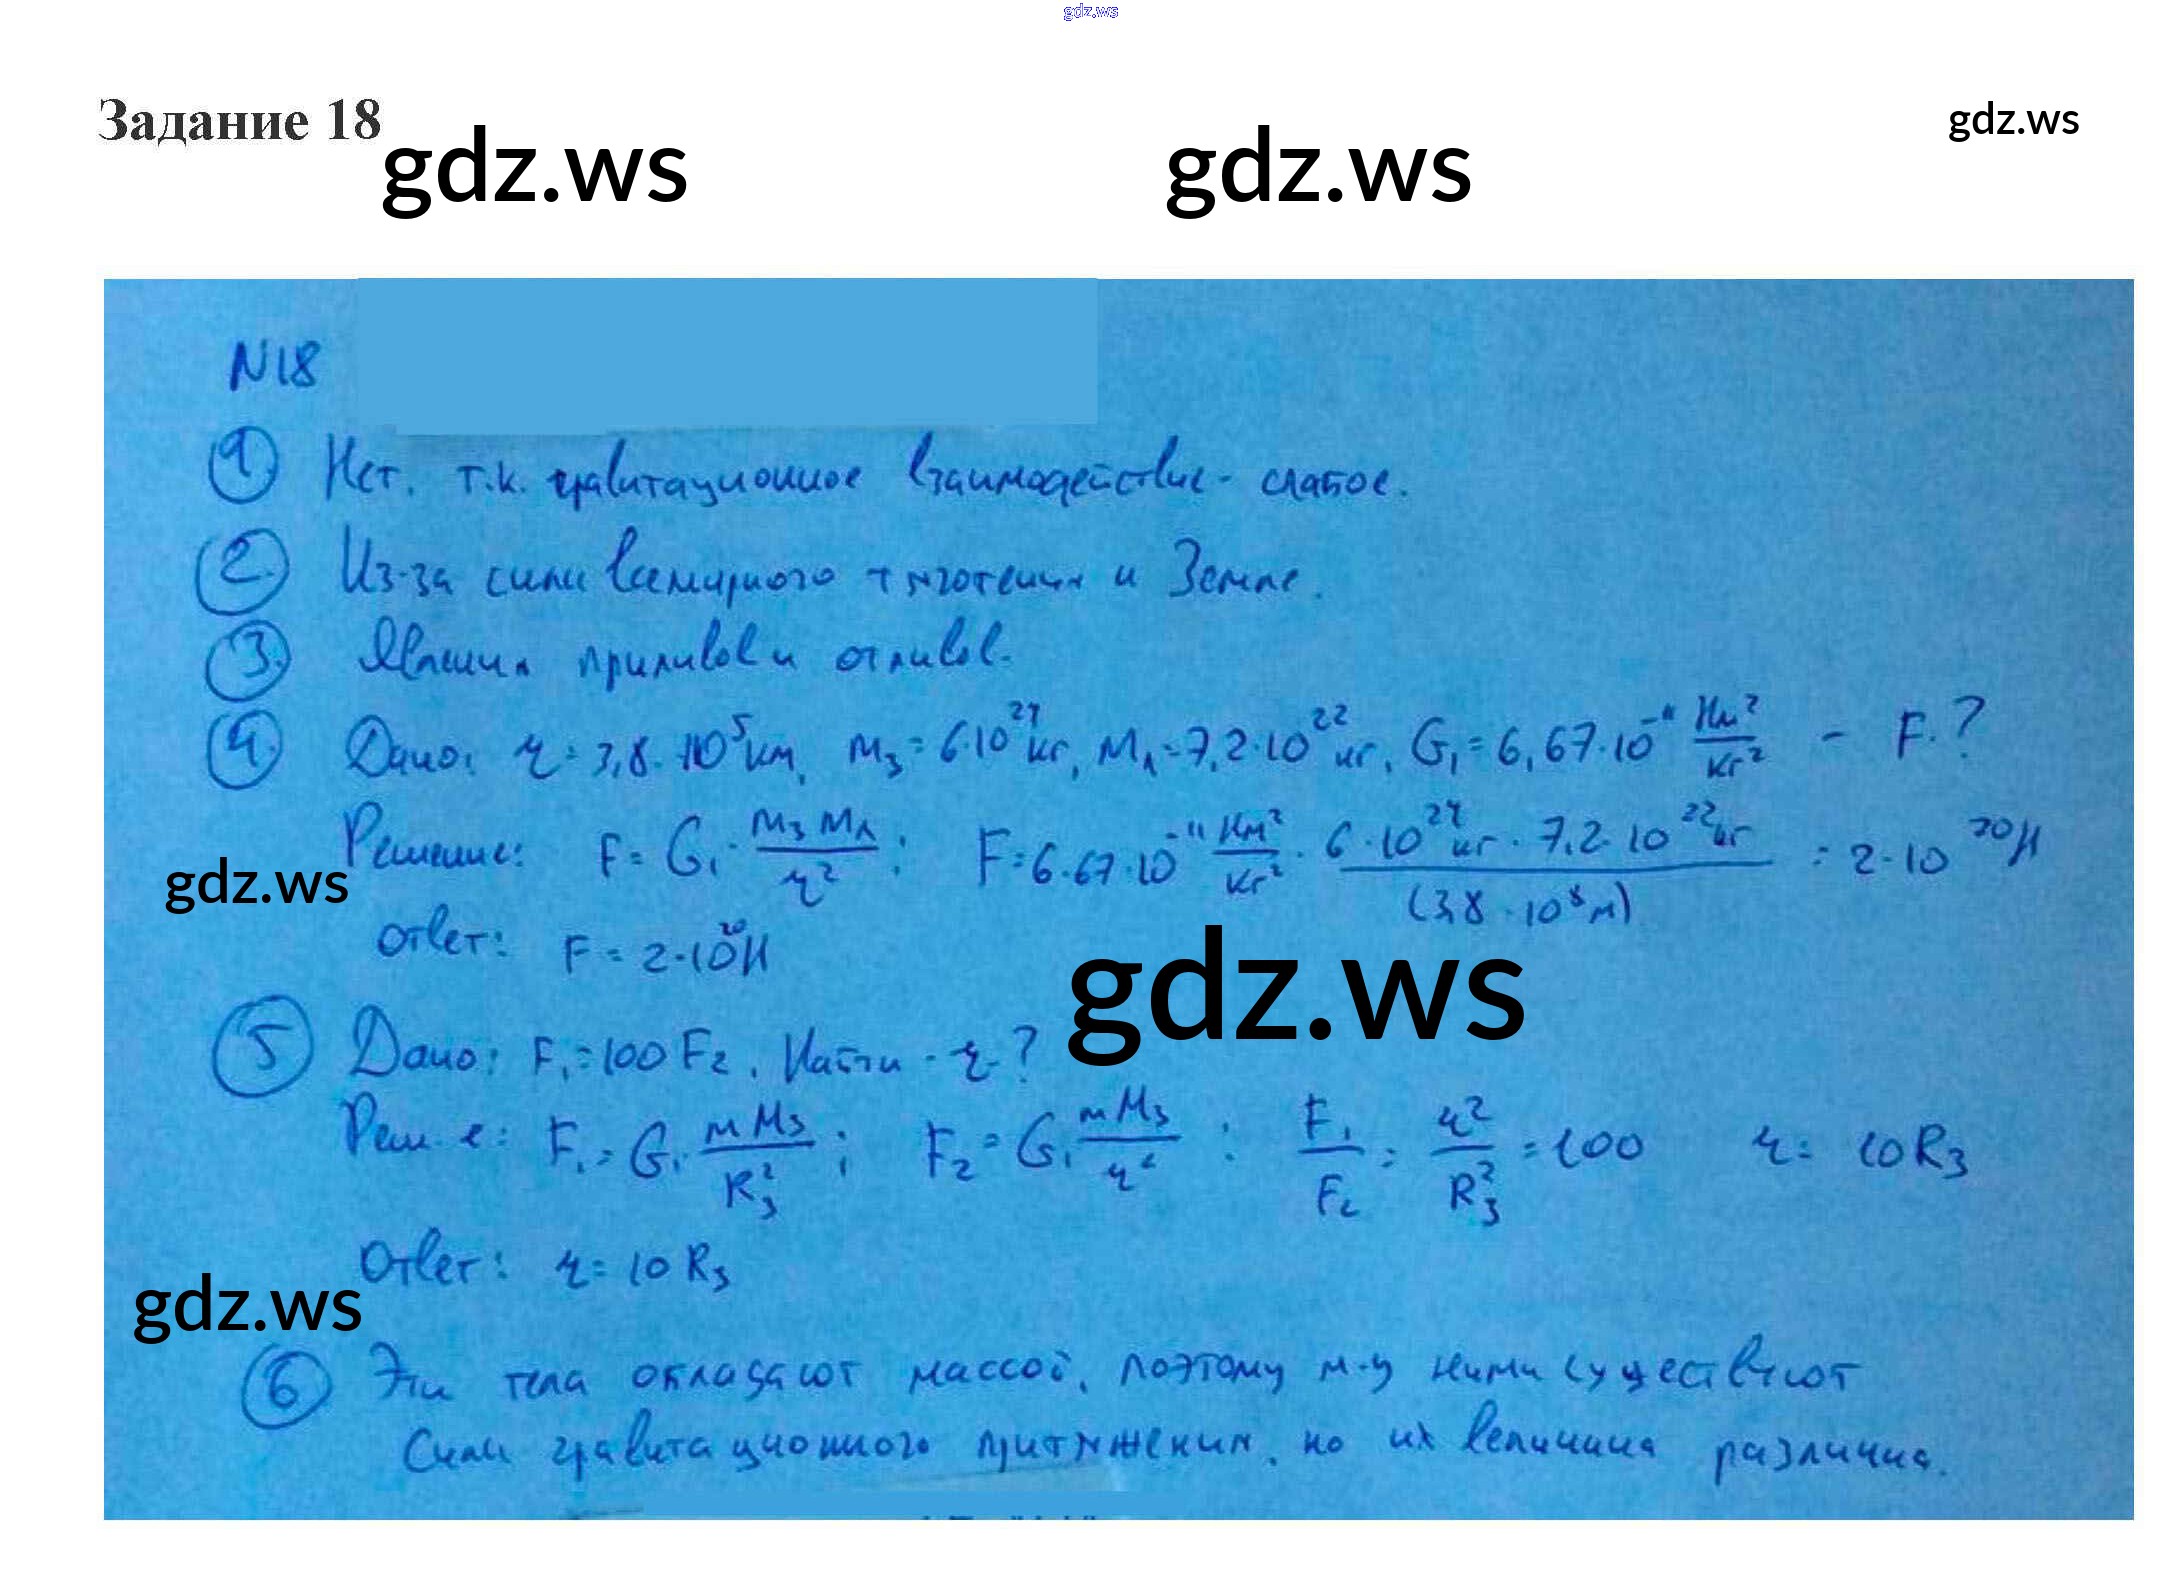 gdz.ws
Задание 18
gdz.ws
gdz.ws gdz.ws
N18
1. Нет. т.к. гравитационное взаимодействие - слабое.
2. Из-за силы всемирного тяготения и Земле.
3. Явления приливов и отливов.
4. Дано: r = 3,8·10⁵ км, M₃ = 6·10²⁴ кг, Mл = 7,2·10²² кг, G₁ = 6,67·10⁻¹¹ Нм²/кг² - F-?
Решение: F = G₁ · M₃ Mл / r² ; F = 6.67·10⁻¹¹ Нм²/кг² · 6·10²⁴ кг · 7,2·10²² кг / (3,8·10⁸ м) = 2·10²⁰ Н
gdz.ws
Ответ: F = 2·10²⁰ Н
gdz.ws
5 Дано: F₁ = 100 F₂. Найти - r-?
Реш-е: F₁ = G₁· m M₃ / R₃² ; F₂ = G₁ m M₃ / r² ; F₁ / F₂ = r² / R₃² = 100 r = 10 R₃
Ответ: r = 10 R₃
gdz.ws
6 Эти тела обладают массой, поэтому м-у ними существуют
силы гравитационного притяжения, но их величина различна.